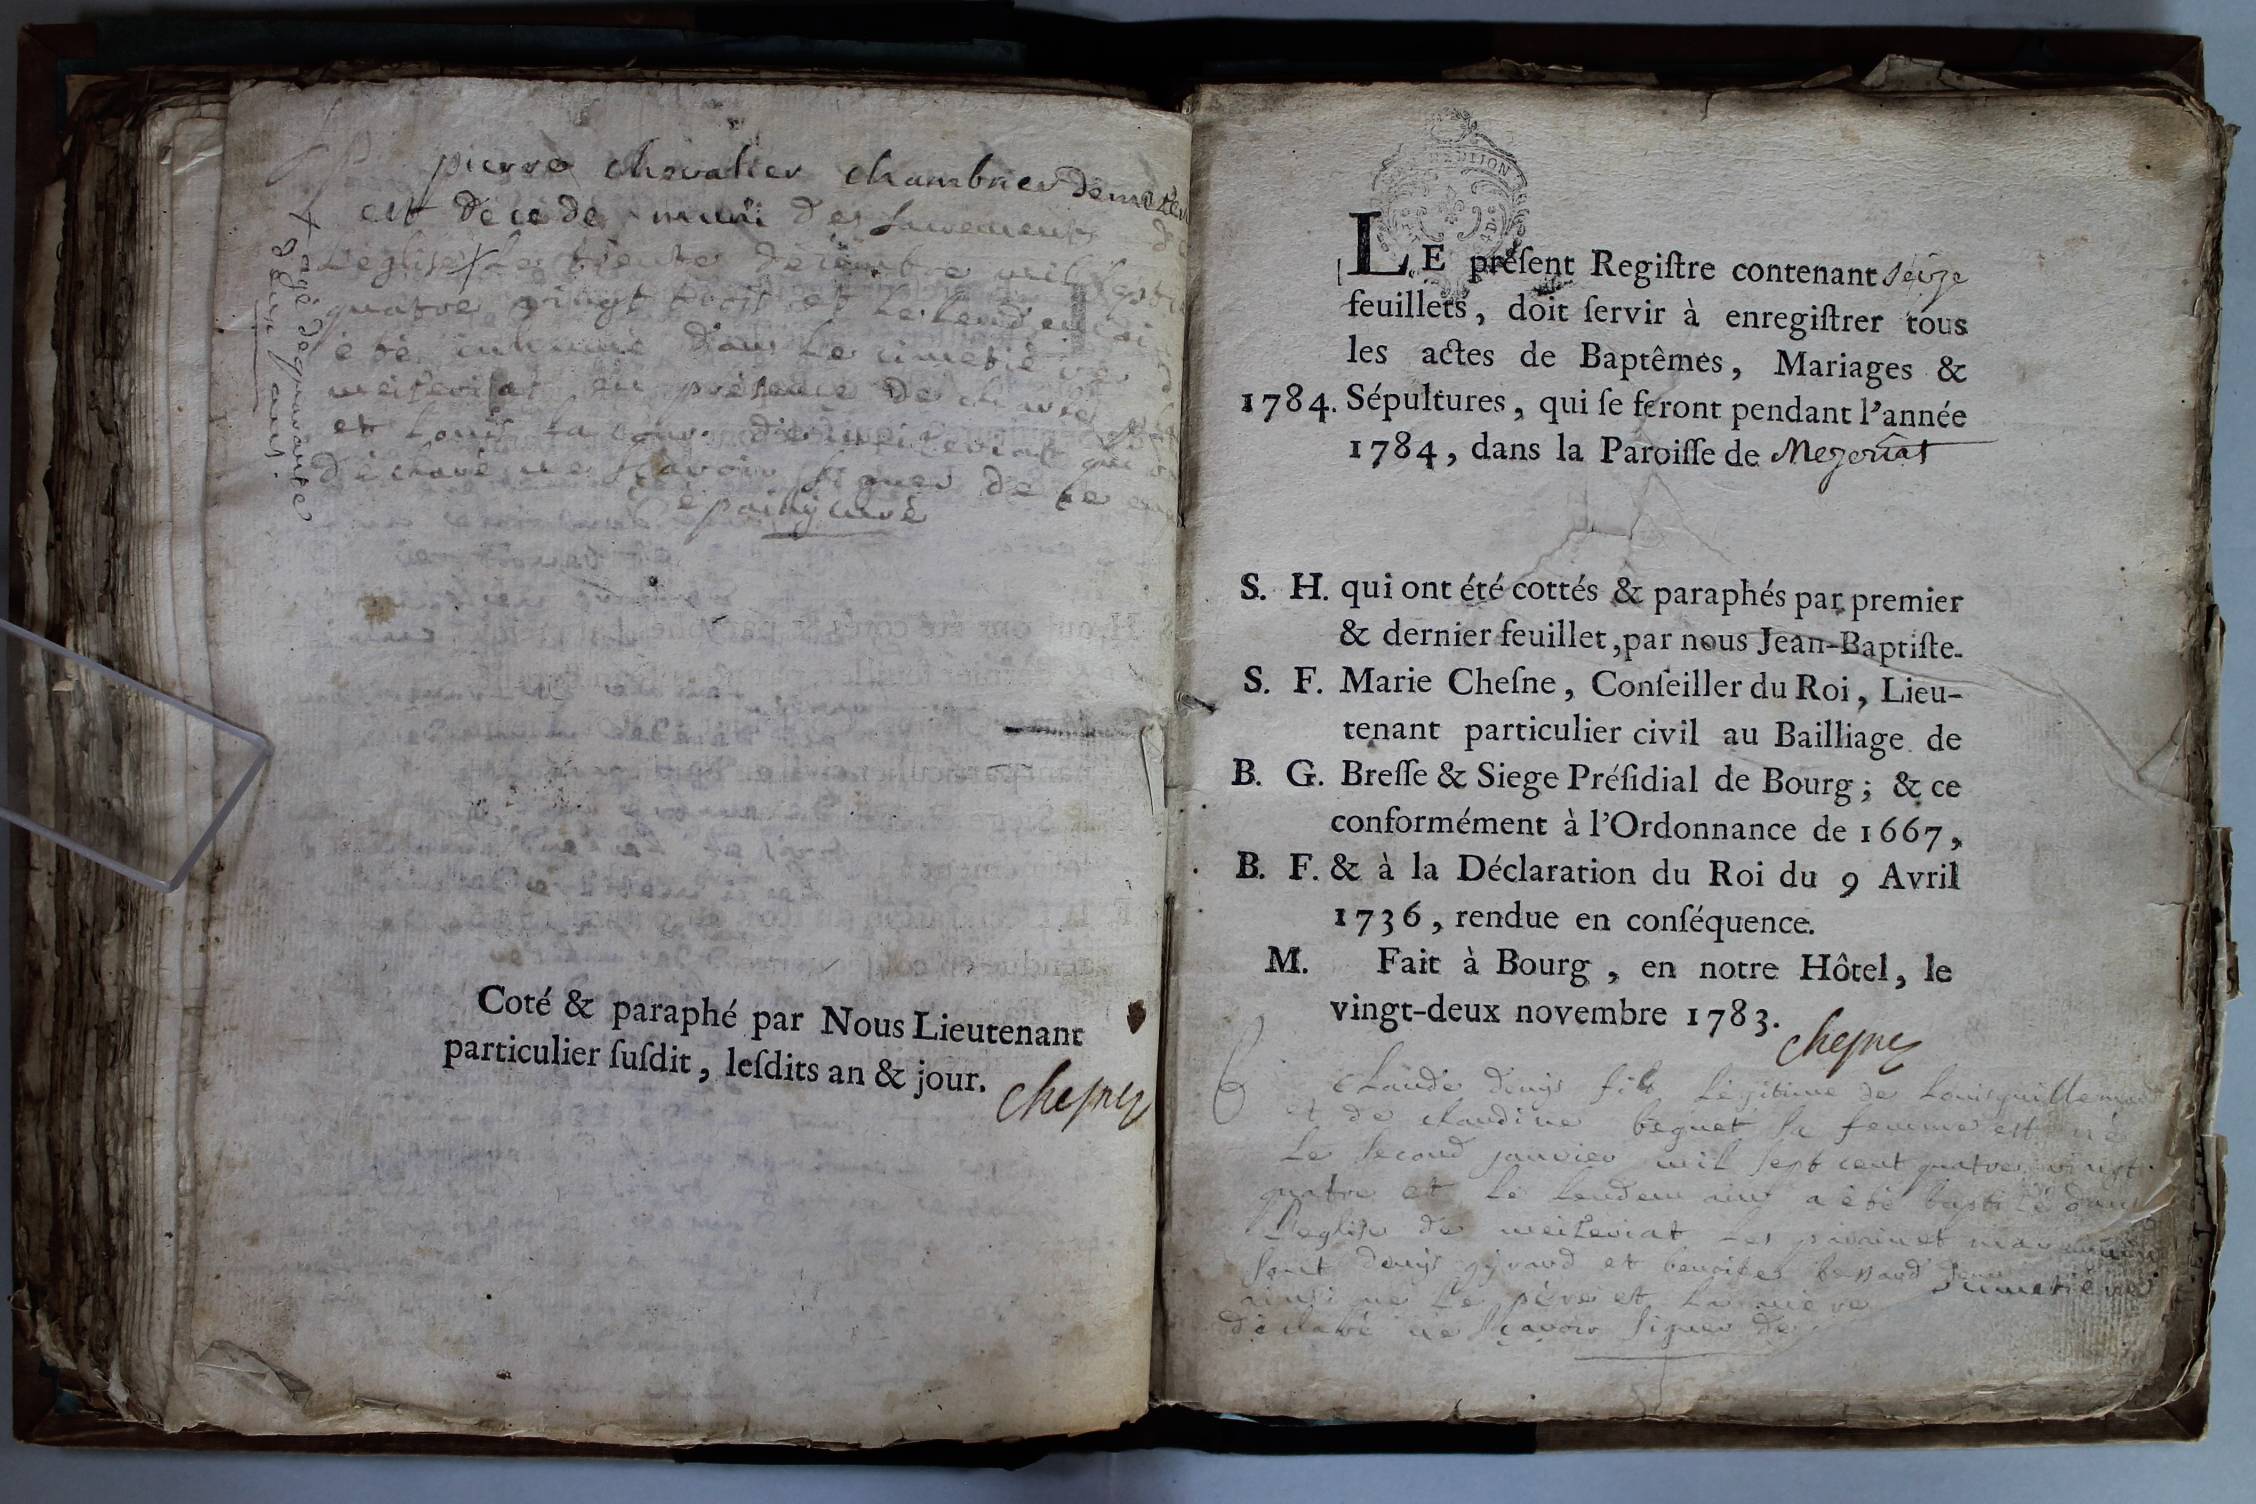 pierre chevalier chambrier de
est décédé muni des sacrements de
L'eglise X Le trente decembre mil sept
quatre vingt trois et Le Lendemain
été inhumé dans Le cimetiè
meizeriat en présence de
et Louis
déclaré ne sçavoir signer de ce
curé
X agé de quarante
deux ans.
Coté & paraphé par Nous Lieutenant
particulier ſuſdit, leſdits an & jour.
Cheſne
DIJON
LE préſent Regiſtre contenant seize
feuillets, doit ſervir à enregiſtrer tous
les actes de Baptêmes, Mariages &
1784. Sépultures, qui ſe feront pendant l'année
1784, dans la Paroiſſe de Mezeriat
S. H. qui ont été cottés & paraphés par premier
& dernier feuillet, par nous Jean-Baptiſte-
S. F. Marie Cheſne, Conſeiller du Roi, Lieu-
tenant particulier civil au Bailliage de
B. G. Breſſe & Siege Préſidial de Bourg; & ce
conformément à l'Ordonnance de 1667,
B. F. & à la Déclaration du Roi du 9 Avril
1736, rendue en conſéquence.
M. Fait à Bourg, en notre Hôtel, le
vingt-deux novembre 1783.
Cheſne
B
Claude denys fils Légitime de Louis guillemin
et de claudine beguet sa femme est né
Le second janvier mil sept cent quatre vingt
quatre et Le Lendemain a été baptisé dans
L'eglise de meizeriat Les parain et maraine
sont denys gyraud et benoite
ainsi que Le père et La mère
déclaré ne sçavoir signer de